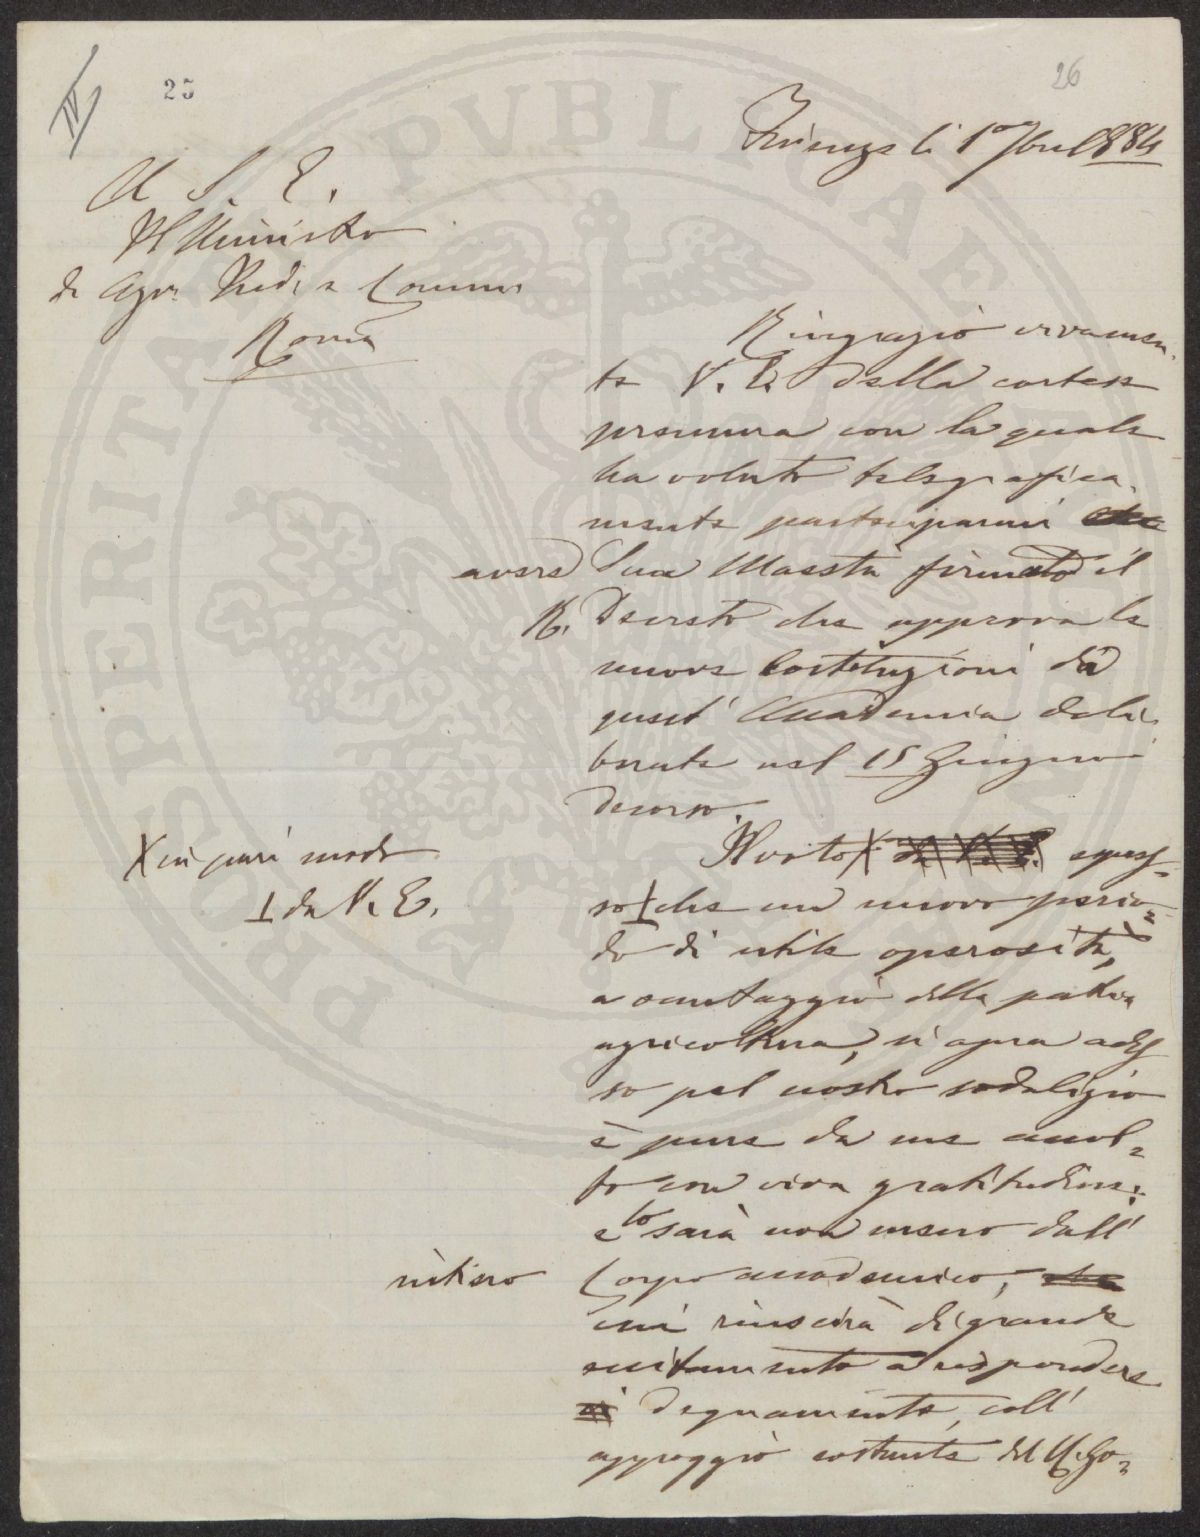 25
26
IV
Firenze li 1° 7bre 1884
A S. E.
Il Ministro
di Agr. Ind. e Comm.
Roma
Ringrazio vivamen-
te V. E. della cortese
premura con la quale
ha voluto telegrafica-
mente parteciparmi che
avere Sua Maestà firmato il
R. Decreto che approva le
nuove Costituzioni di
quest' Accademia deli-
berate nel 15 Giugno
decorso.
Il voto X da V. E. espres-
X in pari modo
so ⊥ che un nuovo perio-
⊥ da V. E.
do di utile operosità,
a vantaggio della patria
agricoltura, si apra ades-
so pel nostro sodalizio
è pure da me accol-
to con viva gratitudine;
e lo sarà non meno dall'
intiero Corpo accademico, che
mi riuscirà di grande
eccitamento a rispondere
degnamente, coll'
appoggio costante del R. Go-
PROSPERITATI PVBLICAE AVGENDAE